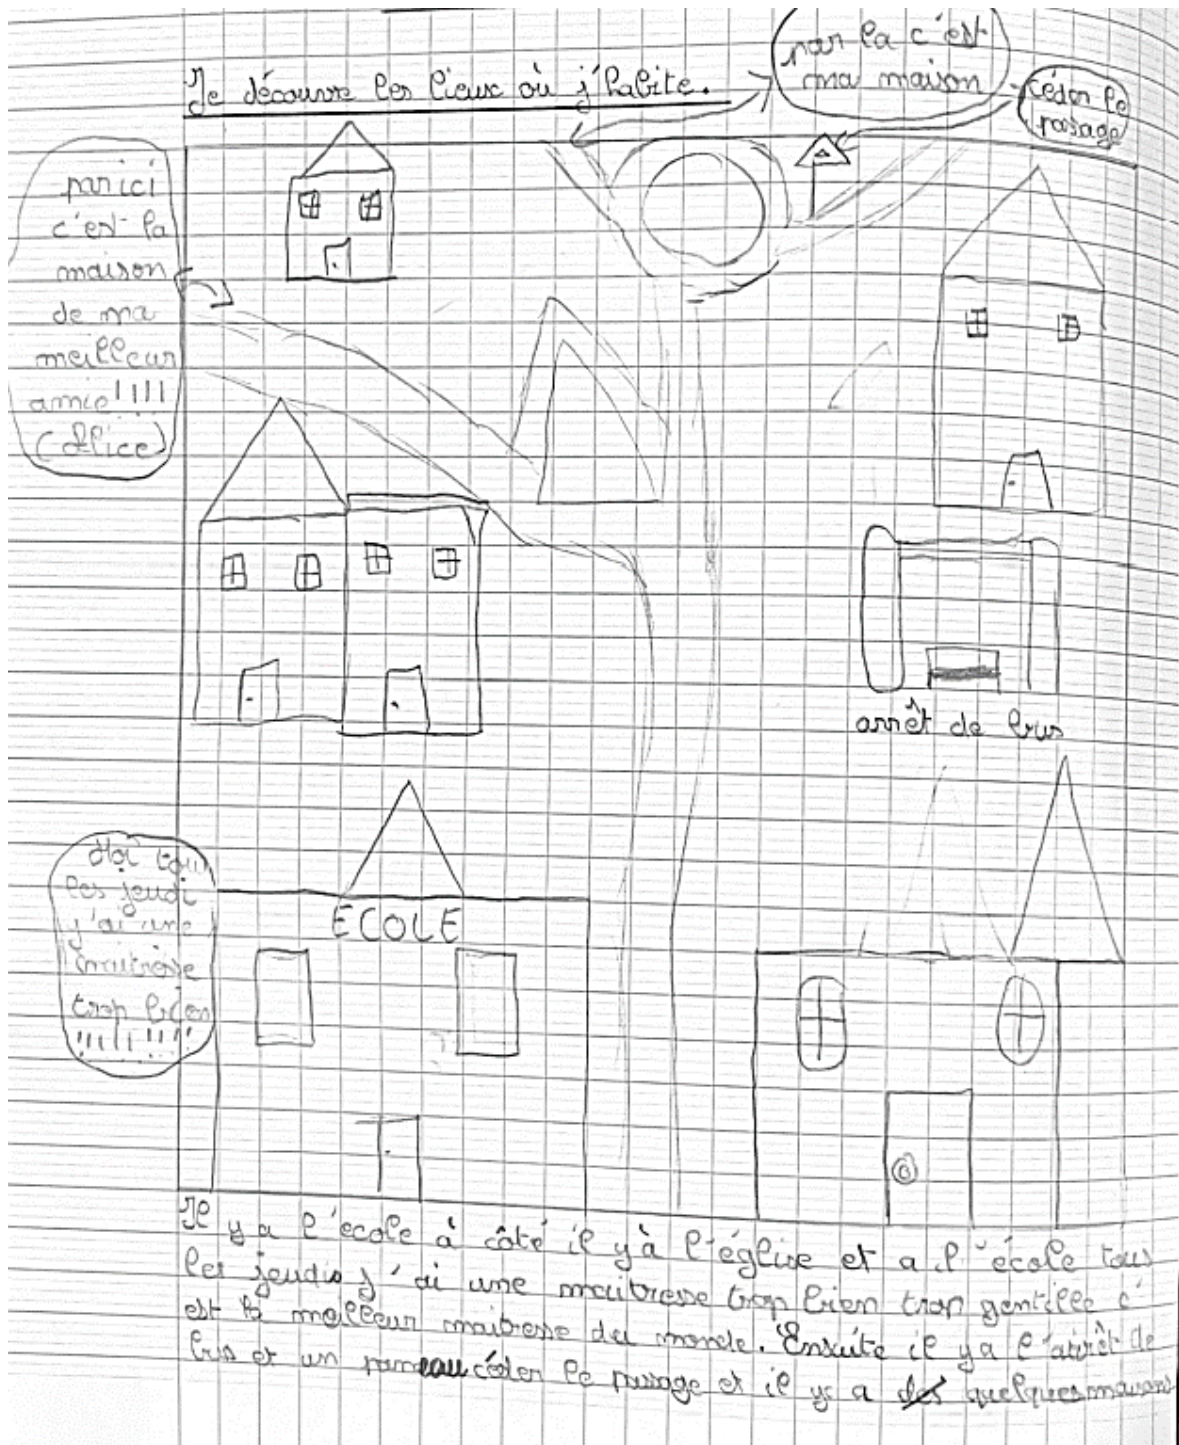 Je découvre les lieux où j'habite.
par la c'est
ma maison
céder le
passage
par ici
c'est la
maison
de ma
meilleur
amie!!!!
(Alice)
arrêt de bus
ECOLE
Moi tous
les jeudi
j'ai une
maitresse
trop bien
!!!!!!!!!
Il y a l'école à côté il y'à l'église et a l'école tous
les jeudis j'ai une maitresse trop bien trop gentille c'
est la meilleur maitresse du monde. Ensuite il ya l'arrêt de
bus et un panneau céder le passage et il y a quelques maisons